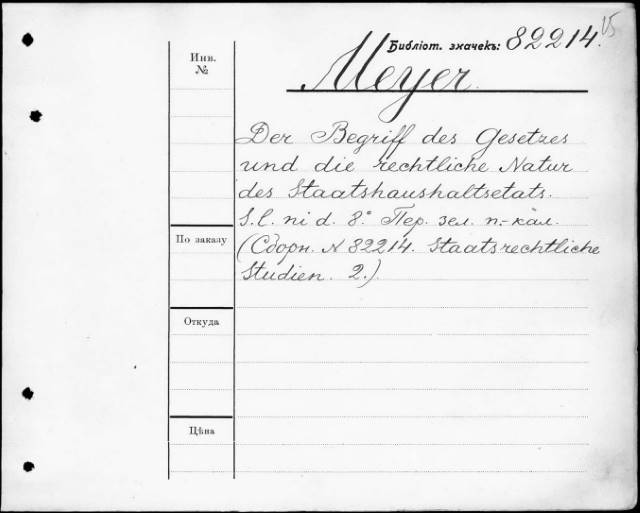 Библіот. значекъ: 82214.
15
Инв.
№
Meyer.
Der Begriff des Gesetzes
und die rechtliche Natur
des Staatshaushaltsetats.
S. l. ni d. 8° Пер. зел. п.-кал.
По заказу
(Сборн. № 82214. Staatsrechtliche
Studien. 2.)
Откуда
Цѣна